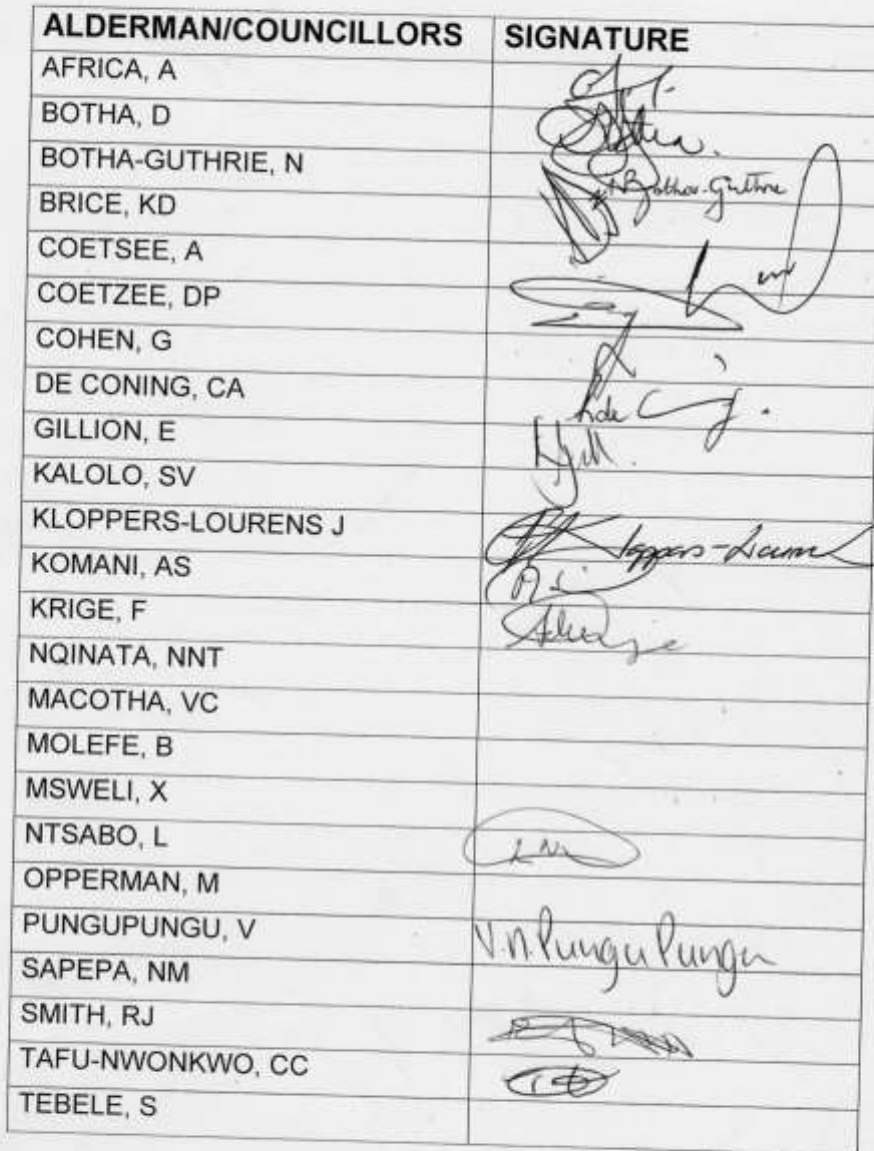 ALDERMAN/COUNCILLORS SIGNATURE
AFRICA, A
BOTHA, D
BOTHA-GUTHRIE, N N Botha-Guthrie
BRICE, KD
COETSEE, A
COETZEE, DP
COHEN, G
DE CONING, CA
GILLION, E
KALOLO, SV
KLOPPERS-LOURENS J
KOMANI, AS
KRIGE, F
NQINATA, NNT
MACOTHA, VC
MOLEFE, B
MSWELI, X
NTSABO, L
OPPERMAN, M
PUNGUPUNGU, V V.N. PunguPungu
SAPEPA, NM
SMITH, RJ
TAFU-NWONKWO, CC
TEBELE, S